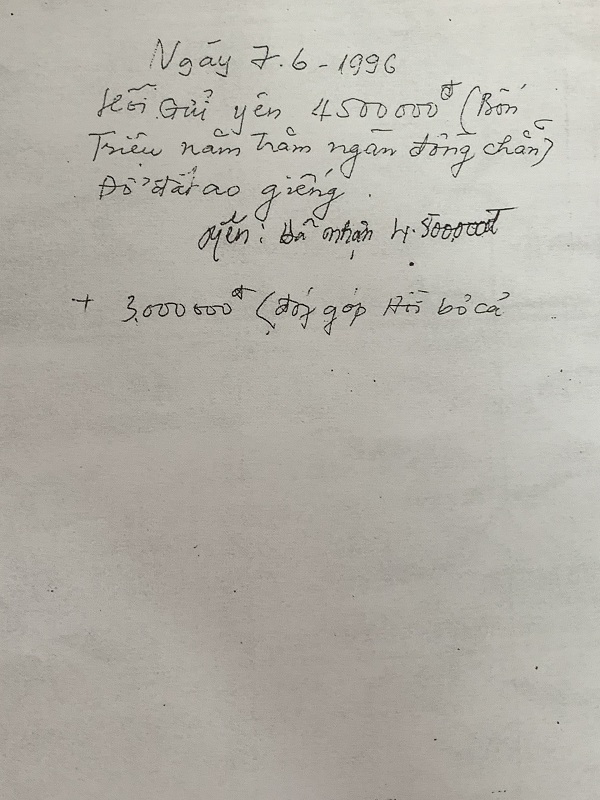 Ngày 7.6-1996
Hồi Gửi yên 4500000đ (Bốn
Triệu năm trăm ngàn đồng chẵn)
Đổ đất ao giếng.
yến: đã nhận 4.500000đ
+ 3.000000đ (đóng góp Hồi bỏ cả